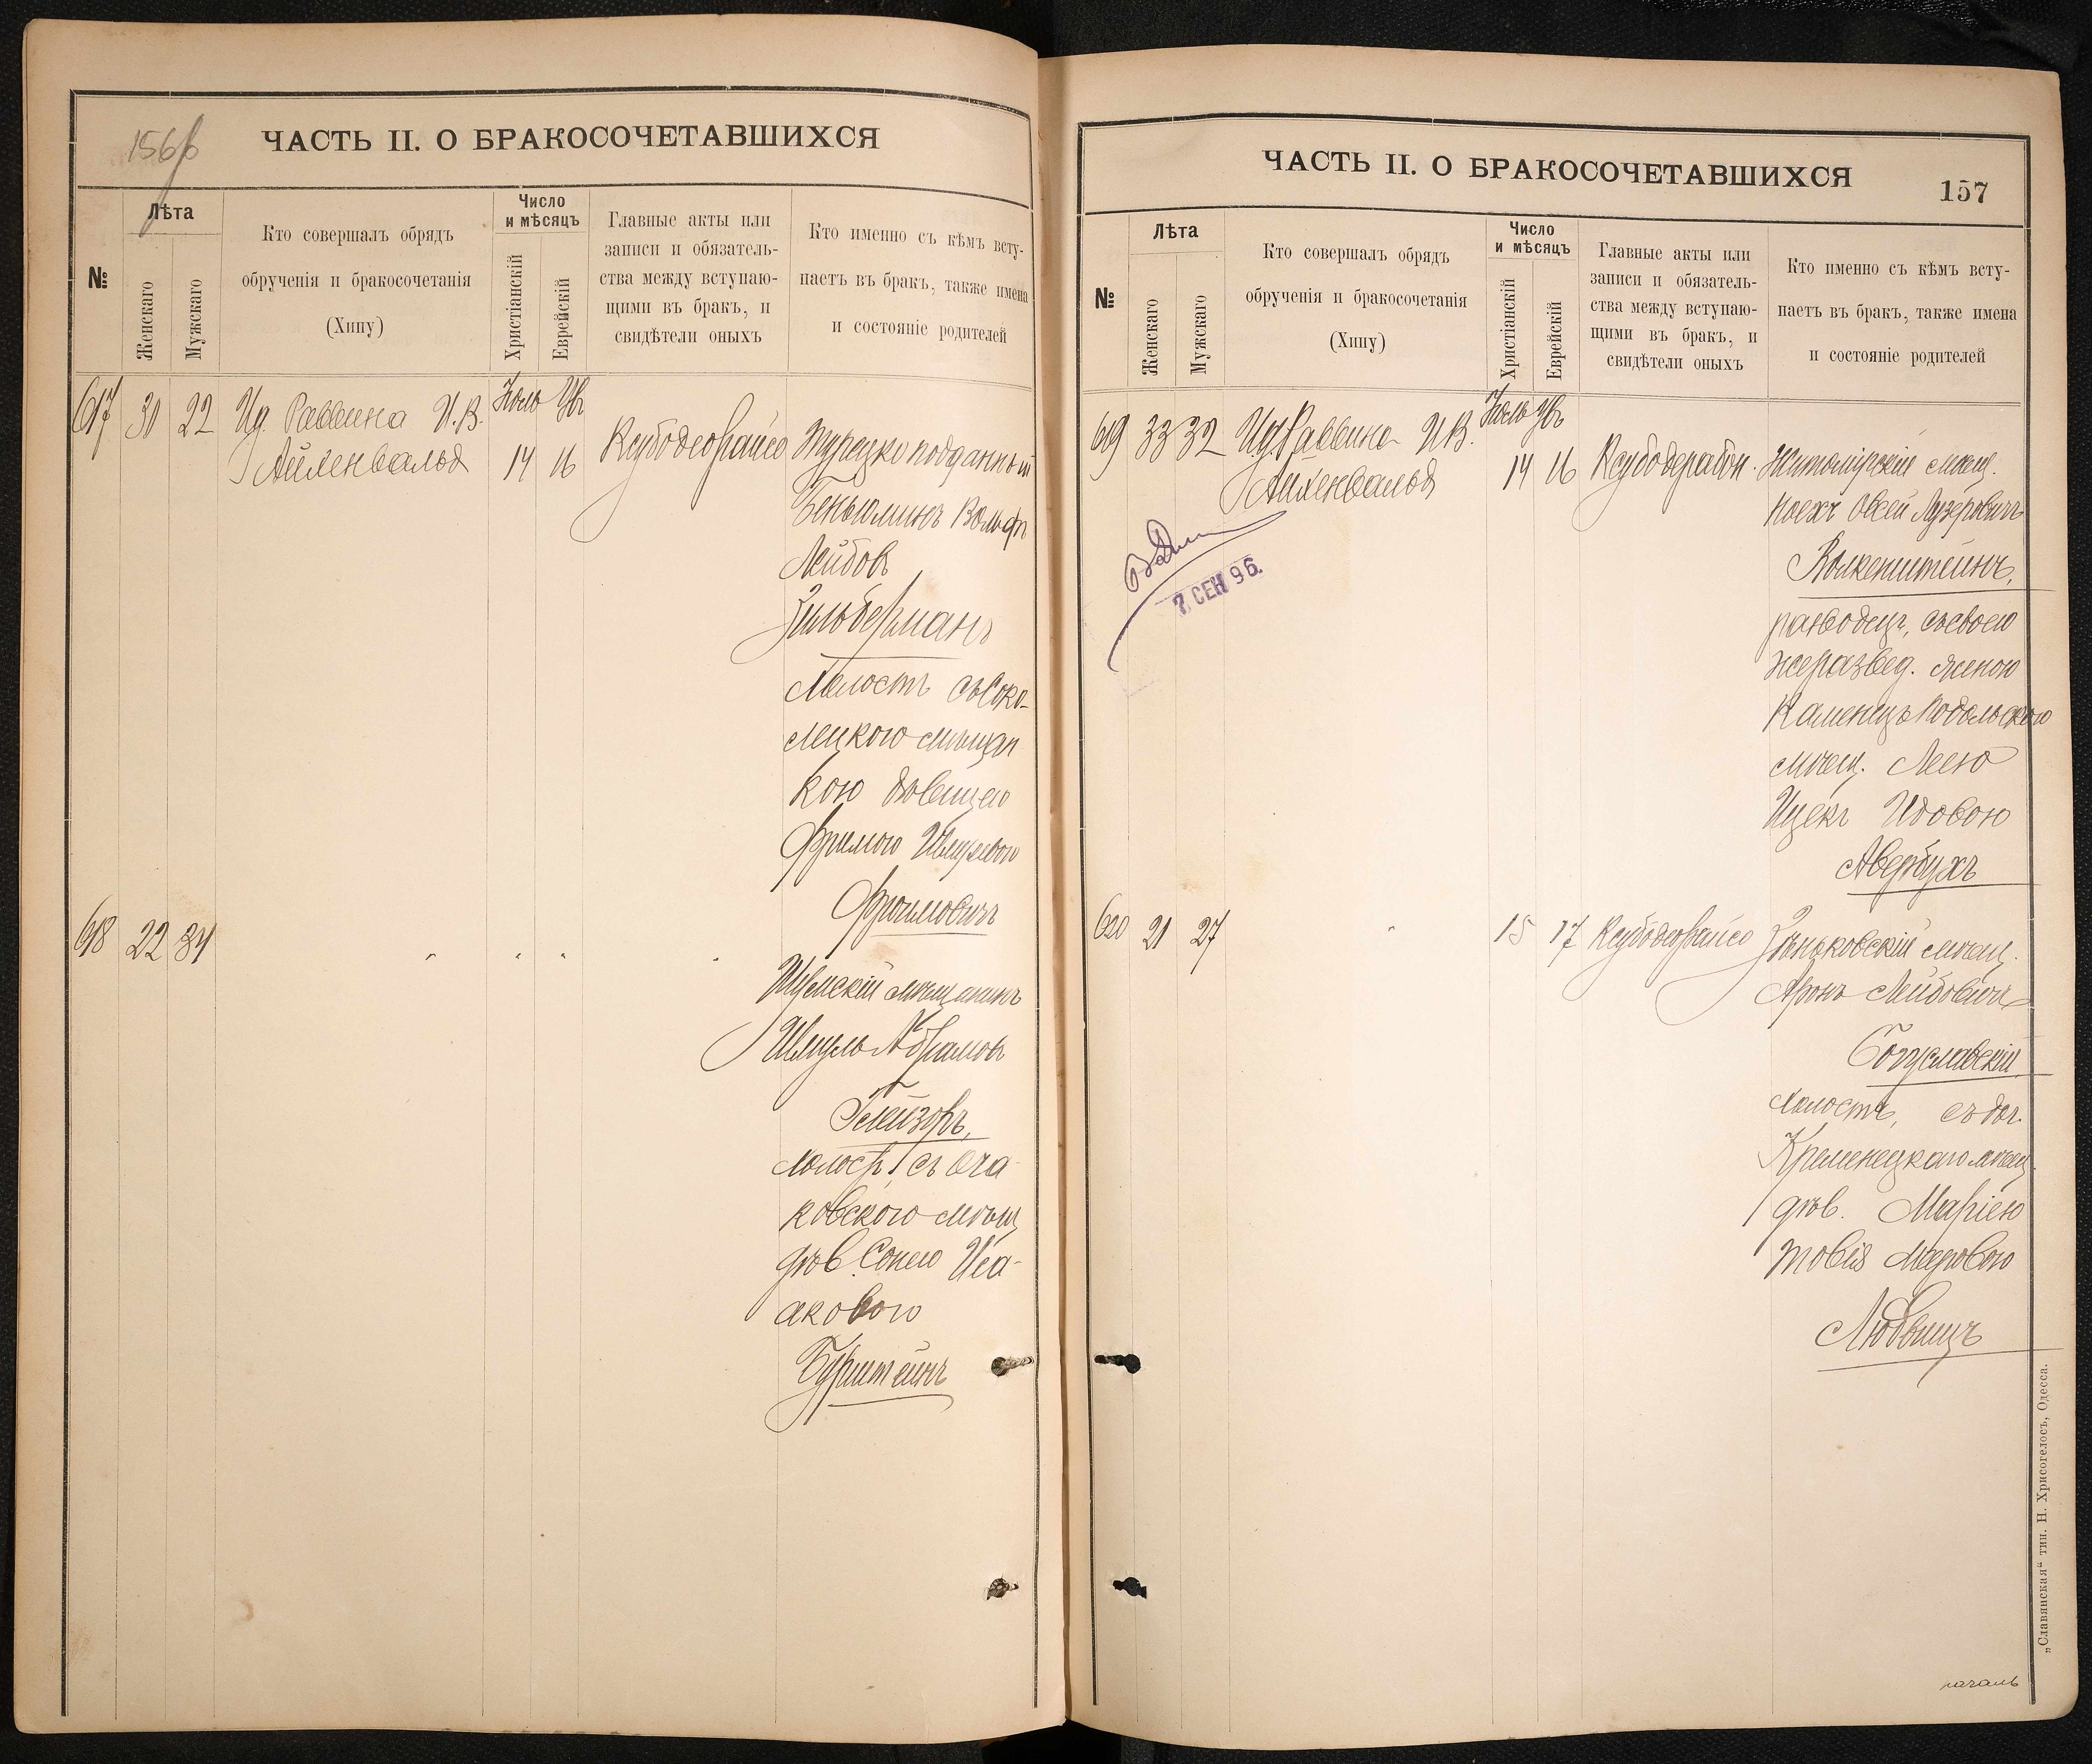 156 б
ЧАСТЬ II. О БРАКОСОЧЕТАВШИХСЯ
№
Лѣта
Женскаго
Мужскаго
Кто совершалъ обрядъ
обрученія и бракосочетанія
(Хипу)
Число
и мѣсяцъ
Христіанскій
Еврейскій
Главные акты или
записи и обязатель-
ства между вступаю-
щими въ бракъ, и
свидѣтели оныхъ
Кто именно съ кѣмъ всту-
паетъ въ бракъ, также имена
и состояніе родителей
617 30 22 Ид. Раввина И. В.
Айхенвальд
Іюль
14 16
Ксубодеорайсо
Турецко подданный
Беньюминъ Вольфъ
Лейбовъ
Зильберманъ
холостъ съ Соко-
лецкою мѣщан
кою дѣвицею
Фримою
Фроимовичъ
618 22 34 " " " "
Шумскій мѣщанинъ
Шмуль Абрамовъ
Глейзеръ,
холостъ, съ Оча-
ковскою мѣщ
дѣв. Сонею Иса-
аковою
Бурштейнъ
ЧАСТЬ II. О БРАКОСОЧЕТАВШИХСЯ
157
№
Лѣта
Женскаго
Мужскаго
Кто совершалъ обрядъ
обрученія и бракосочетанія
(Хипу)
Число
и мѣсяцъ
Христіанскій
Еврейскій
Главные акты или
записи и обязатель-
ства между вступаю-
щими въ бракъ, и
свидѣтели оныхъ
Кто именно съ кѣмъ всту-
паетъ въ бракъ, также имена
и состояніе родителей
619 33 32 Ид. Раввина И. В.
Айхенвальд
Іюль
14 16
Житомірскій мѣщ.
Овсей Лузеровичъ
разводецъ, съ своею
же развед. женою
Каменецъ Подольскою
мѣщ. Леею
Ицекъ Идовою
Авербухъ
7 СЕН 96.
620 21 27 " 15 17 Ксубодеорайсо
Зѣньковскій мѣщ.
Аронъ Лейбовичъ
Богуславскій
холостъ, съ доч.
Кременецкаго мѣщ.
дѣв. Маріею
Товія Мееровою
„Славянская“ тип. Н. Хрисогелосъ, Одесса.